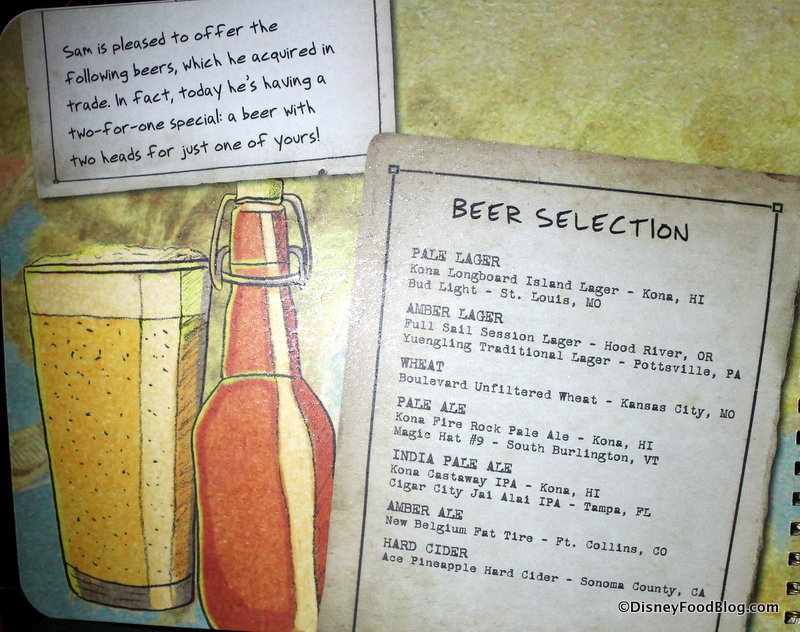 Sam is pleased to offer the
following beers, which he acquired in
trade. In fact, today he's having a
two-for-one special: a beer with
two heads for just one of yours!
BEER SELECTION
PALE LAGER
Kona Longboard Island Lager - Kona, HI
Bud Light - St. Louis, MO
AMBER LAGER
Full Sail Session Lager - Hood River, OR
Yuengling Traditional Lager - Pottsville, PA
WHEAT
Boulevard Unfiltered Wheat - Kansas City, MO
PALE ALE
Kona Fire Rock Pale Ale - Kona, HI
Magic Hat #9 - South Burlington, VT
INDIA PALE ALE
Kona Castaway IPA - Kona, HI
Cigar City Jai Alai IPA - Tampa, FL
AMBER ALE
New Belgium Fat Tire - Ft. Collins, CO
HARD CIDER
Ace Pineapple Hard Cider - Sonoma County, CA
©DisneyFoodBlog.com